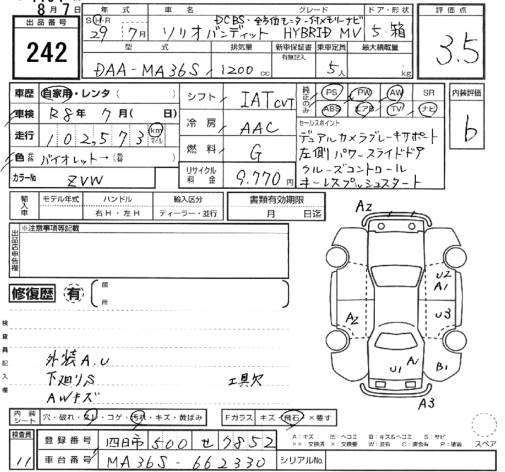 8月7日
年式 車名 グレード ドア・形状 評価点
出品番号
242
S H・R
29年7月 ソリオバンディット DCBS・全方位モニター付メモリーナビ HYBRID MV 5・箱
3.5
型式 排気量 新車保証書 乗車定員 最大積載量
有無記入
DAA-MA36S 1200cc 5人 kg
車歴 自家用・レンタ( )
車検 R8年7月( 日)
走行 102,573km
マイル
色 バイオレット→( )
カラーNo ZVW
シフト IAT CVT
冷房 AAC
燃料 G
リサイクル料金 9,770円
PS PW AW SR
ABS エアB TV ナビ
内装評価
b
セールスポイント
デュアルカメラブレーキサポート
左側パワースライドドア
クルーズコントロール
キーレスプッシュスタート
輸入車 モデル年式 ハンドル 輸入区分 書類有効期限
右H・左H ディーラー・並行 月 日迄
出品店申告欄
※注意事項等記載
修復歴 有
検査員記入欄
外装A.U
下廻りS 工具欠
AWキズ
A2
U2
A1
A2
U3
A1
U1
B1
A3
内装シート 穴・破れ・シミ・コゲ・汚れ・キズ・黄ばみ Fガラス キズ・飛石・×要す
A:キズ U:ヘコミ B:キズ&ヘコミ S:サビ
スペア
検査員
11
登録番号 四日市 500 せ 7852
車台番号 MA36S-662330 シリアルNo.